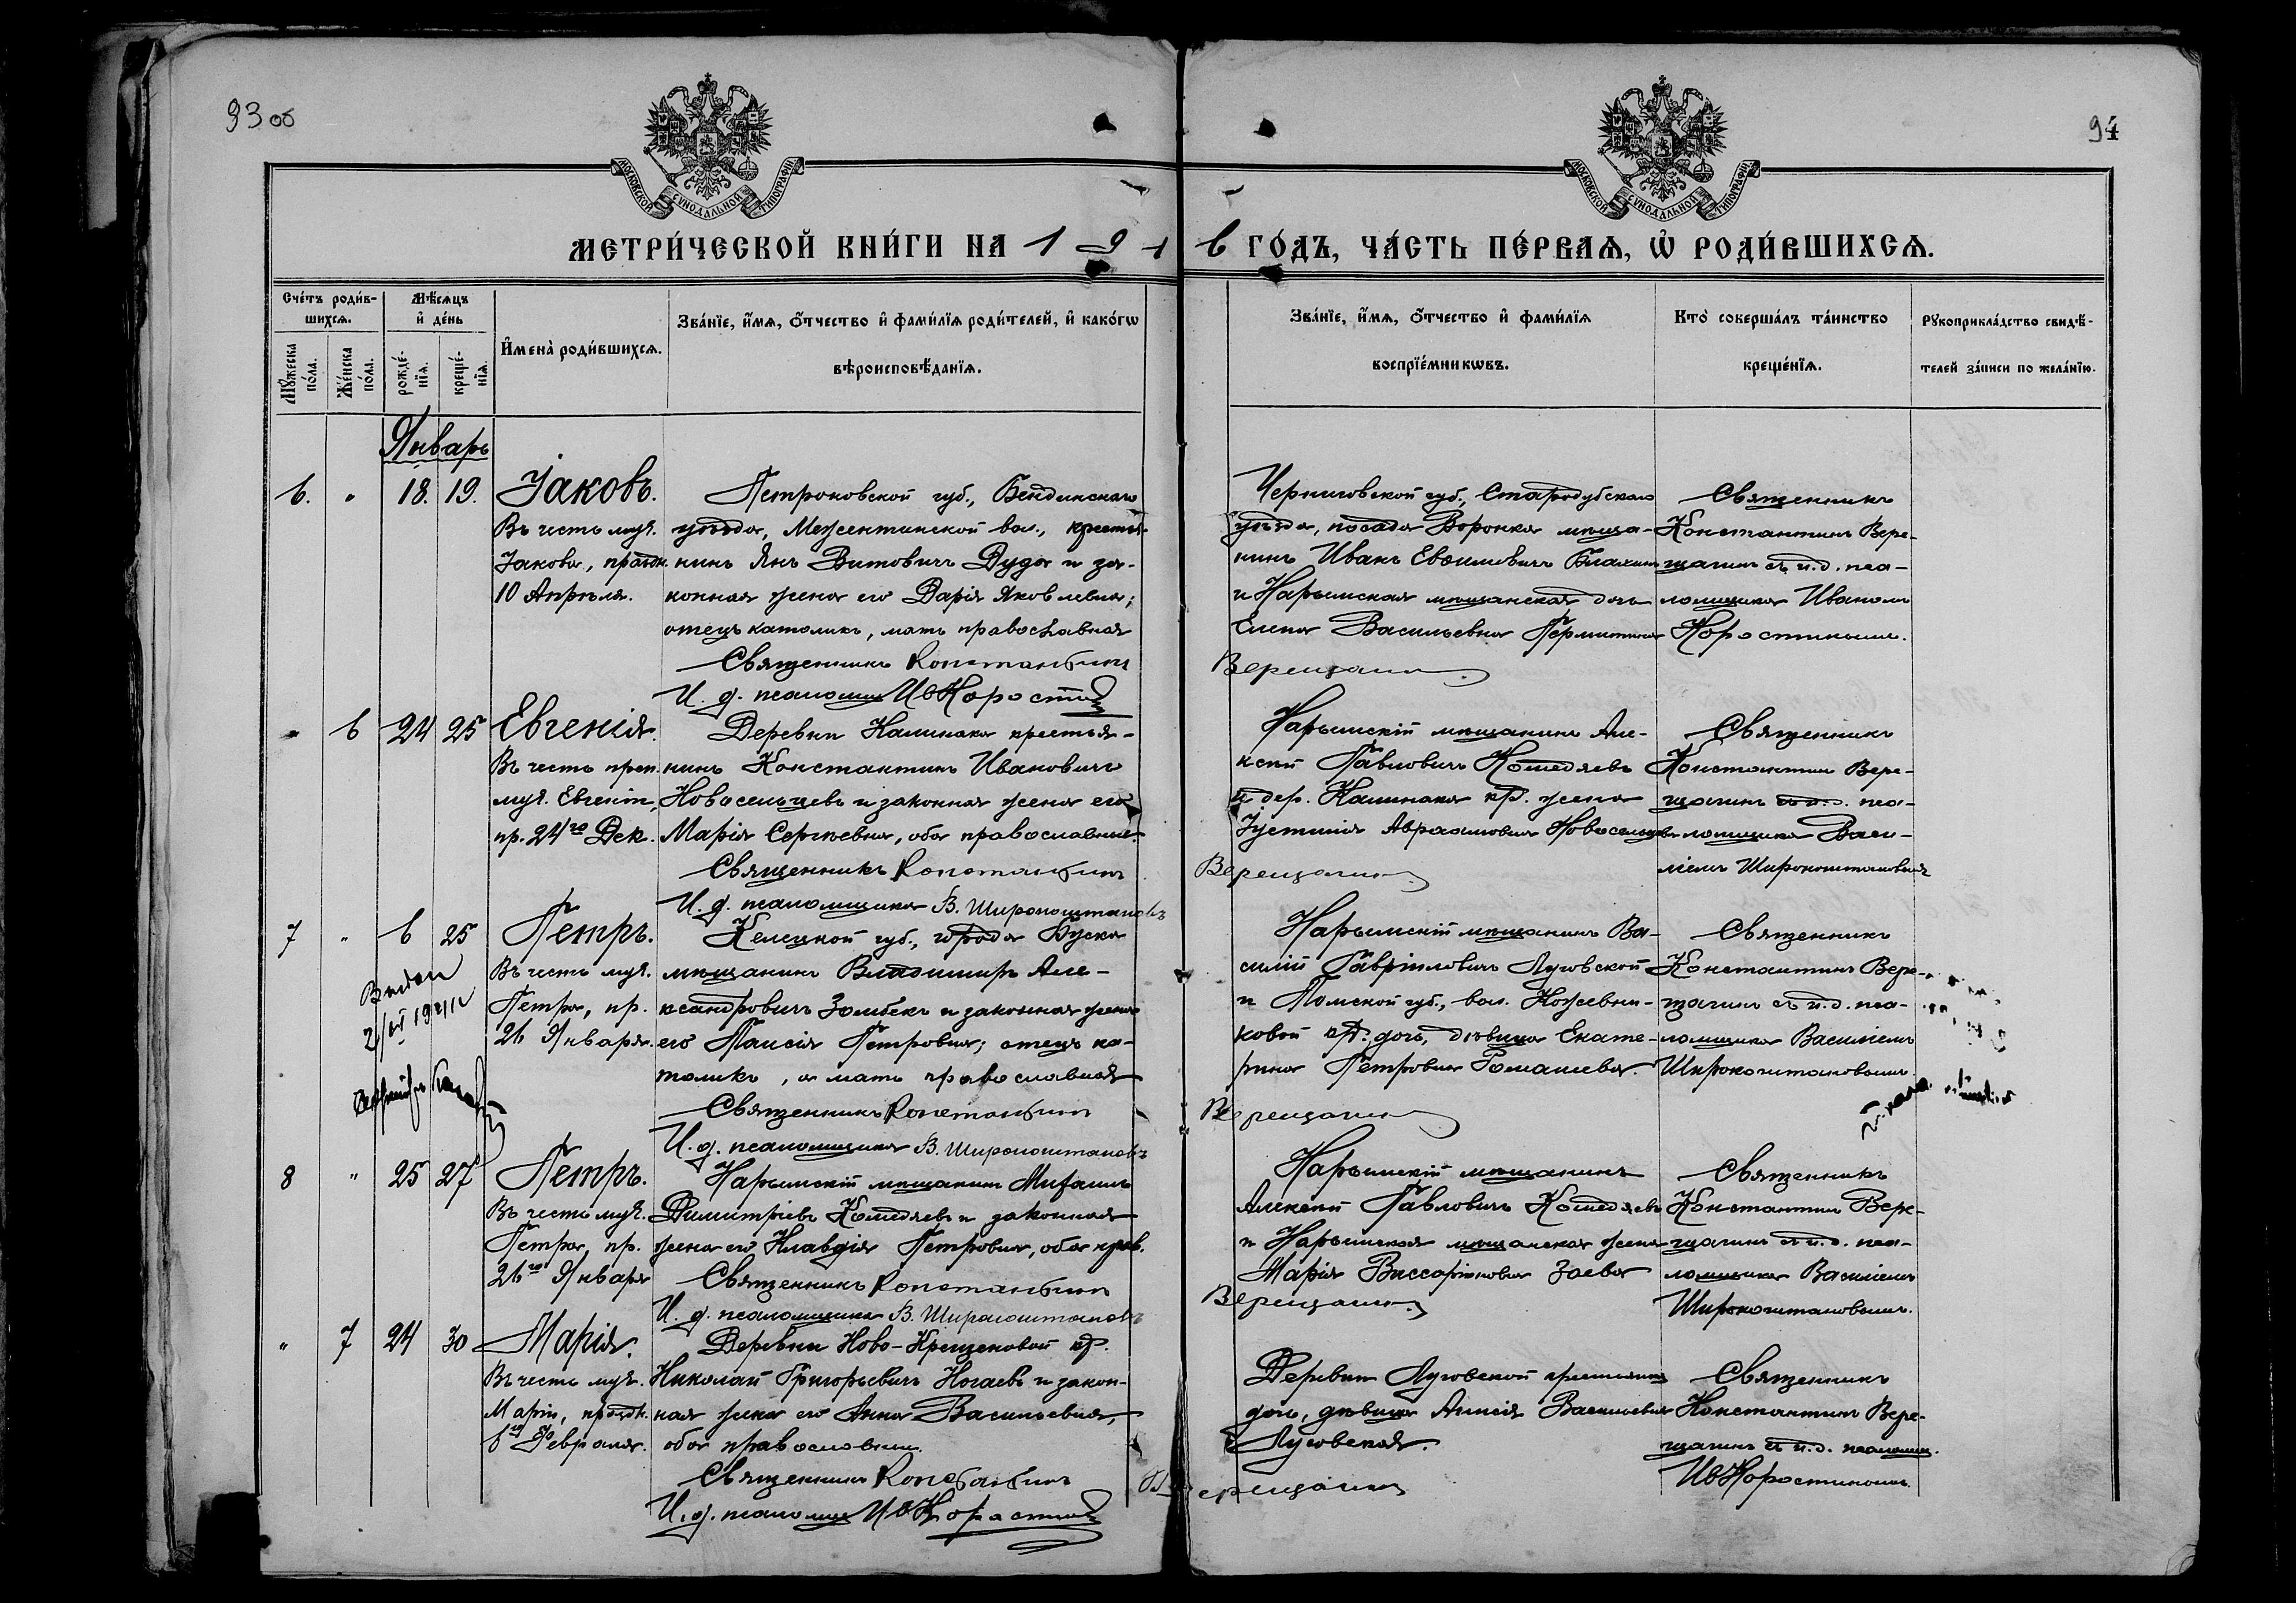 93 об
94
МОСКОВСКОЙ СУНОДАЛЬНОЙ ТИПОГРАФІИ
МОСКОВСКОЙ СУНОДАЛЬНОЙ ТИПОГРАФІИ
МЕТРИ́ЧЕСКОЙ КНИ́ГИ НА 1916 ГО́ДЪ, ЧА́СТЬ ПЕ́РВАѦ, Ѡ҆ РОДИ́ВШИХСѦ.
Сче́тъ роди́в-
шихсѧ.
Мѣ́сѧцъ
и҆ де́нь
Мꙋ́жеска
по́ла.
Же́нска
по́ла.
рожде́-
нїѧ.
креще́-
нїѧ.
И҆мена̀ роди́вшихсѧ.
Зва́нїе, и҆́мѧ, ѻ҆́тчество и҆ фами́лїѧ роди́телей, и҆ како́гѡ
вѣроисповѣ́данїѧ.
Зва́нїе, и҆́мѧ, ѻ҆́тчество и҆ фами́лїѧ
воспрїе́мникѡвъ.
Кто̀ соверша́лъ та́инство
креще́нїѧ.
Рꙋкоприкла́дство свидѣ́-
телей за́писи по жела́нїю.
Январь
6. " 18. 19. Іаковъ.
Въ честь муч.
Іакова, праздн.
10 Апрѣля.
Петроковской губ., Бендинскаго
уѣзда, Мержентинской вол., крестья-
нинъ Янъ Витовичъ Дуда и за-
конная жена его Дарія Яковлевна;
отецъ католикъ, мать православная
Священникъ Константинъ Верещагинъ
И. д. псаломщ Ив Коростин
Черниговской губ., Стародубскаго
уѣзда, посада Воронка мѣща-
нинъ Иванъ Евѳимовичъ
и Нарымская мѣщанская дочь
Елена Васильевна
Священникъ
Константинъ Вере-
щагинъ съ и.д. пса-
ломщика Иваномъ
Коростинымъ.
" 6 24 25 Евгенія.
Въ честь преп.
муч. Евгеніи,
пр. 24го Дек.
Деревни Калинака крестья-
нинъ Константинъ Ивановичъ
Новосельцевъ и законная жена его
Марія Сергѣевна, оба православные.
Священникъ Константинъ Верещагинъ
И. д. псаломщика В. Широкоштановъ
Нарымскій мѣщанинъ Але-
ксѣй Павловичъ Комедяевъ
и дер. Калинака кр. жена
Іустинія Авраамовна Новосельцева
Священникъ
Константинъ Вере-
щагинъ съ и.д. пса-
ломщика Васи-
ліемъ Широкоштановымъ
7 " 6 25 Петръ.
Въ честь муч.
Петра, пр.
26 Января.
Келецкой губ., города Буска
мѣщанинъ Владимиръ Але-
ксандровичъ Зомбекъ и законная жена
его Таисія Петровна; отецъ ка-
толикъ, а мать православная
Священникъ Константинъ Верещагинъ
И. д. псаломщика В. Широкоштановъ
Нарымскій мѣщанинъ Ва-
силій Гавріиловичъ Луговской
и Томской губ., вол. Кожевни-
ковой кр. дочь, дѣвица Екате-
рина Петровна Ромашева.
Священникъ
Константинъ Вере-
щагинъ съ и.д. пса-
ломщика Василіемъ
Широкоштановымъ.
8 " 25 27 Петръ.
Въ честь муч.
Петра, пр.
26го Января
Нарымскій мѣщанинъ Михаилъ
Димитріевъ Комедяевъ и законная
жена его Клавдія Петровна, оба прав.
Священникъ Константинъ Верещагинъ
И. д. псаломщика В. Широкоштановъ
Нарымскій мѣщанинъ
Алексѣй Павловичъ Комедяевъ
и Нарымская мѣщанская жена
Марія Виссаріоновна Заева
Священникъ
Константинъ Вере-
щагинъ съ и.д. пса-
ломщика Василіемъ
Широкоштановымъ.
" 7 24 30 Марія.
Въ честь муч.
Маріи, праздн.
6го Февраля.
Деревни Ново-Крещеновой кр.
Николай Григорьевичъ Ногаевъ и закон-
ная жена его Анна Васильевна,
оба православны.
Священникъ Константинъ Верещагинъ
И. д. псаломщ Ив Коростин
Деревни Луговской крестьянская
дочь, дѣвица Анисія Васильевна
Луговская.
Священникъ
Константинъ Вере-
щагинъ съ и.д. псаломщ.
Ив Коростинымъ.